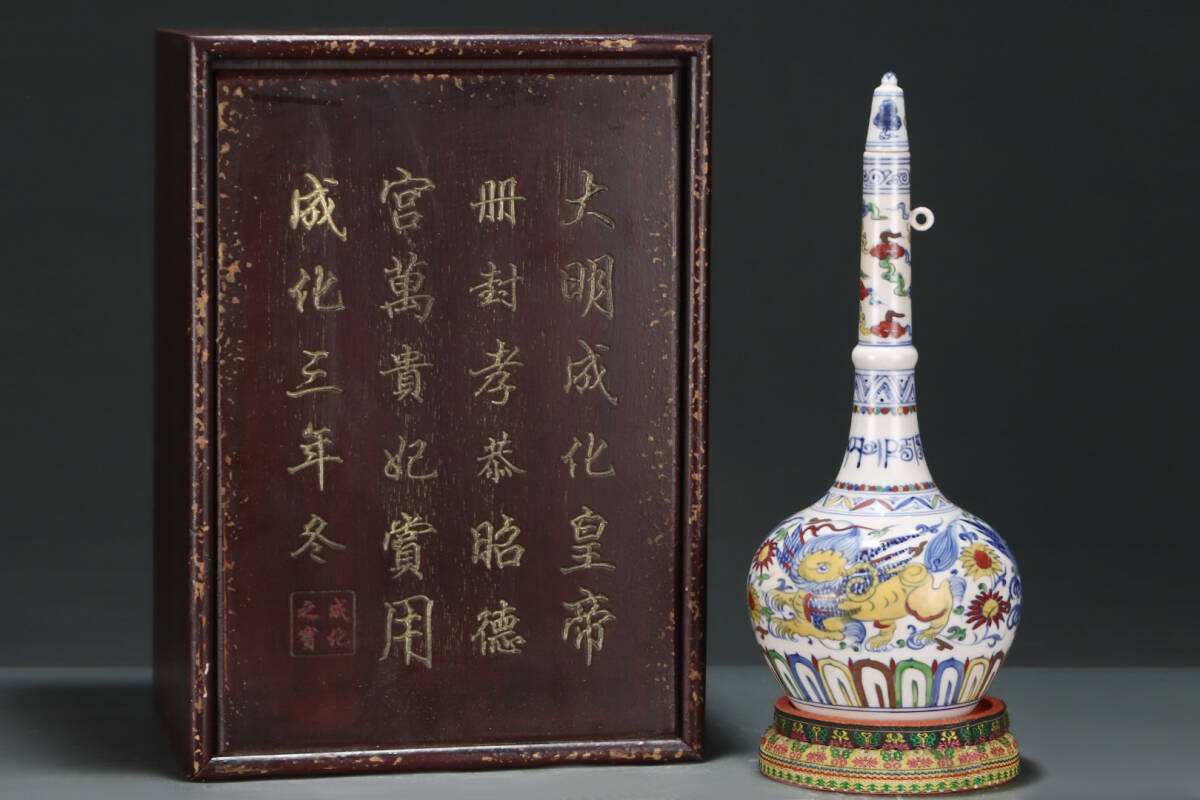 大明成化皇帝
冊封孝恭昭德
宮萬貴妃賞用
成化三年冬
成化之寶